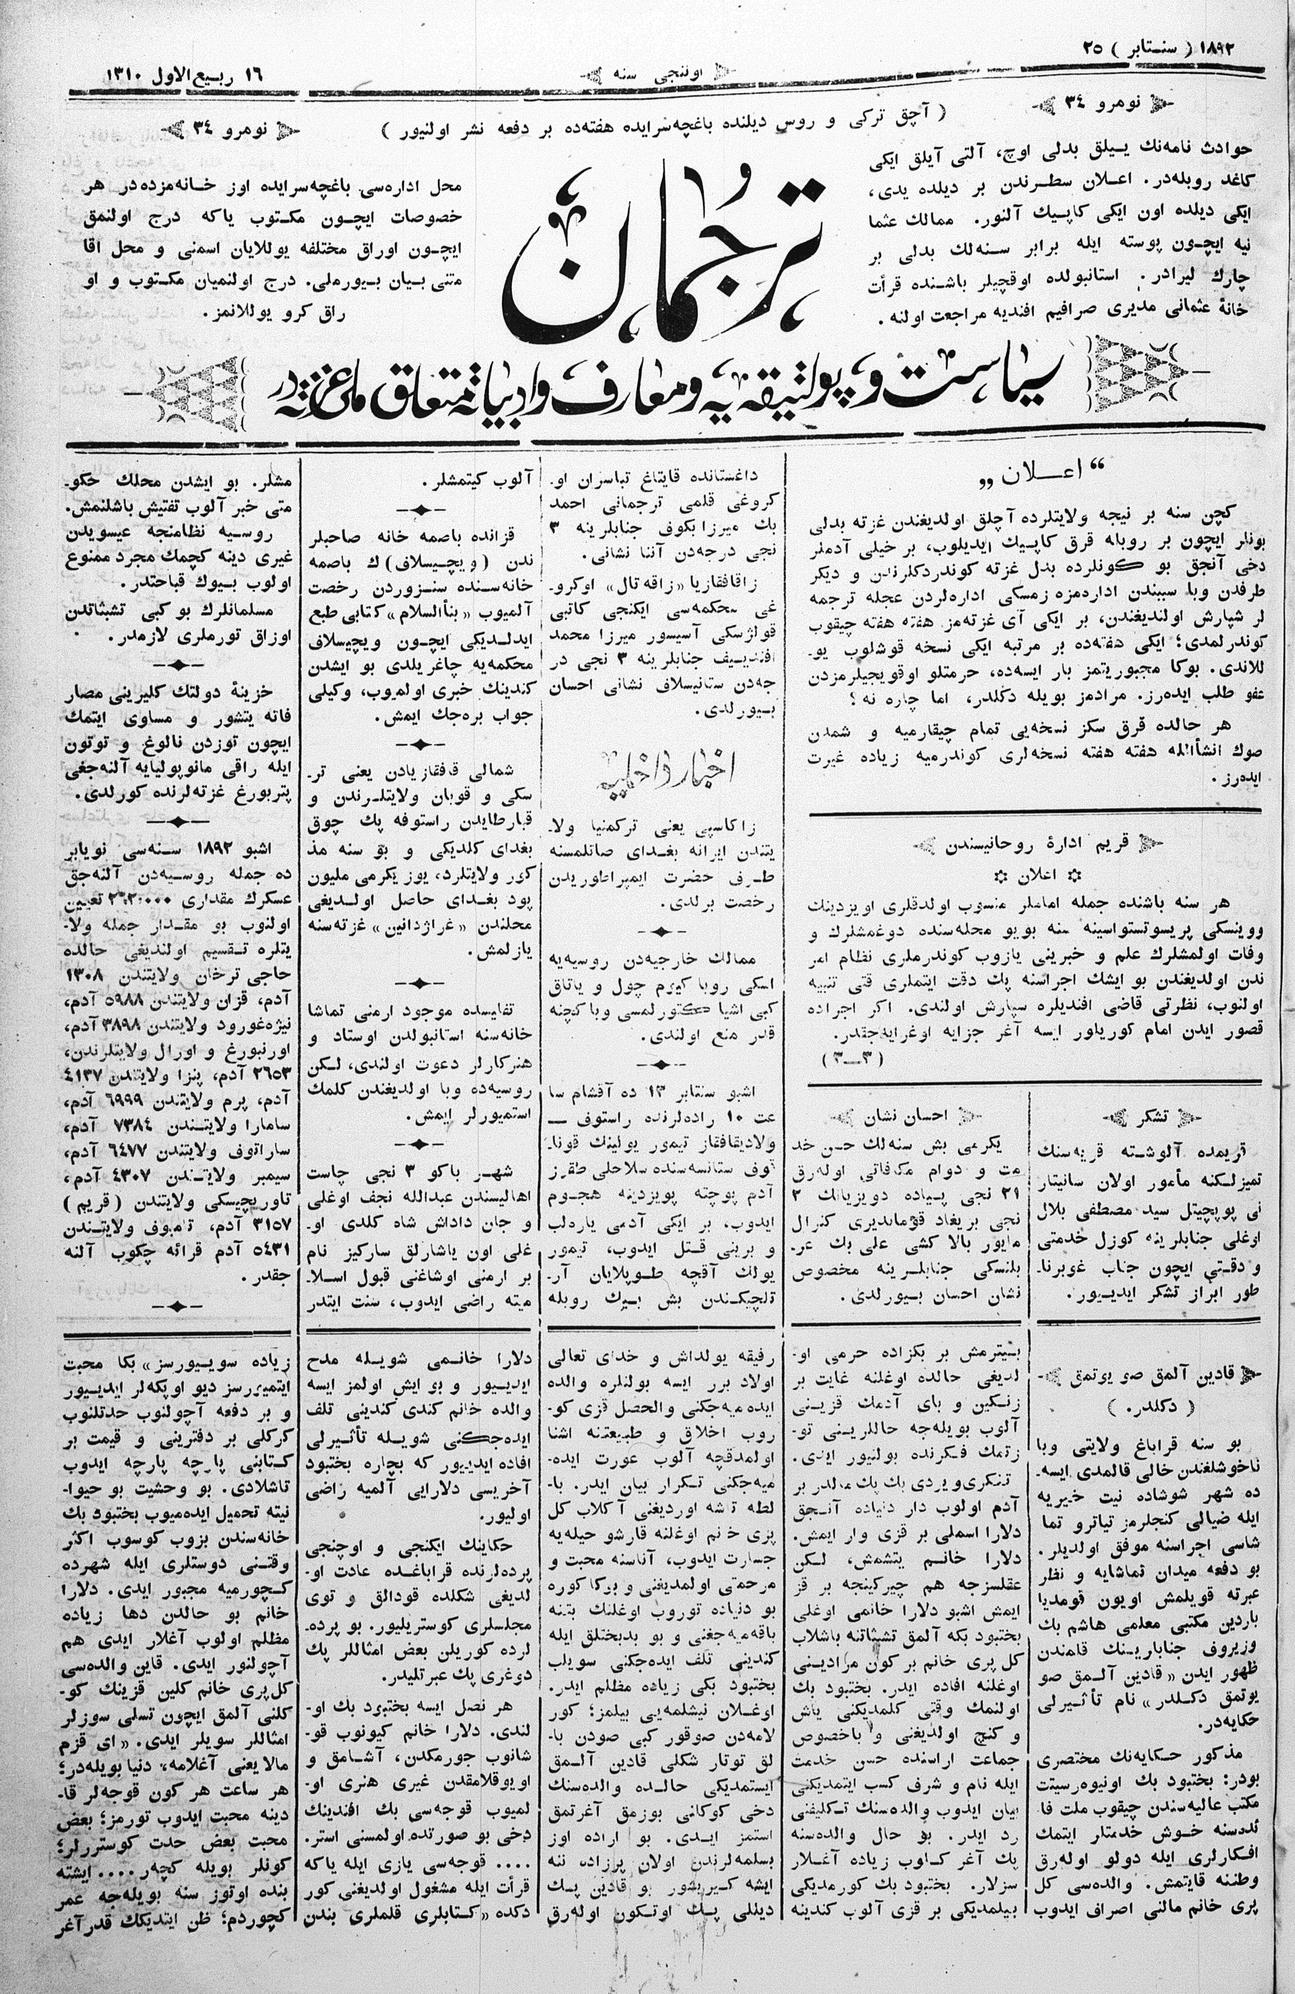 ١٨٩٢ ( سنتابر ) ٢٥
اوننجی سنه
١٦ ربيع الاول ١٣١٠
نومرو ٣٤
( آچق تركی و روس ديلنده باغچه‌سرايده هفته‌ده بر دفعه نشر اولنيور )
نومرو ٣٤
حوادث نامه‌نك ييلق بدلی اوچ، آلتی آيلق ايكی
كاغد روبله‌در. اعلان سطرندن بر ديلده يدی،
ايكی ديلده اون ايكی كاپيك آلنور. ممالك عثما
نيه ايچون پوسته ايله برابر سنه‌لك بدلی بر
چارك ليرادر. استانبولده اوقچيلر باشنده قرأت
خانهٔ عثمانی مديری صرافيم افنديه مراجعت اولنه.
ترجمان
محل اداره‌سی باغچه‌سرايده اوز خانه‌مزده‌در هر
خصوصات ايچون مكتوب ياكه درج اولنمق
ايچون اوراق مختلفه يوللايان اسمنی و محل اقا
متنی بيان بيورملی. درج اولنميان مكتوب و او
راق كرو يوللانمز.
سياست و پولتيقه‌يه و معارف و ادبياته متعلق ملی غزته‌در
« اعلان »
كچن سنه بر نيجه ولايتلرده آچلق اولديغندن غزته بدلی
بونلر ايچون بر روبله قرق كاپيك ايديلوب، بر خيلی آدملر
دخی آنجق بو كونلرده بدل غزته كوندردكلرندن و ديكر
طرفدن وبا سببندن اداره‌مزه زمسكی اداره‌لردن عجله ترجمه
لر شپارش اولنديغندن، بر ايكی آی غزته‌مز هفته هفته چيقوب
كوندرلمدی؛ ايكی هفته‌ده بر مرتبه ايكی نسخه قوشلوب يو-
للاندی. بوكا مجبوريتمز بار ايسه‌ده، حرمتلو اوقويجيلرمزدن
عفو طلب ايده‌رز. مرادمز بويله دكلدر، اما چاره نه؟
هر حالده قرق سكز نسخه‌يی تمام چيقارميه و شمدن
صوك انشأالله هفته هفته نسخه‌لری كوندرميه زياده غيرت
ايده‌رز.
قريم ادارهٔ روحانيسندن
اعلان
هر سنه باشنده جمله اماملر منسوب اولدقلری اويزدينك
ووينسكی پريسوتستواسينه سنه بويو محله‌سنده دوغمشلرك و
وفات اولمشلرك علم و خبرينی يازوب كوندرملری نظام امر
ندن اولديغندن بو ايشك اجراسنه پك دقت ايتملری قتی تنبيه
اولنوب، نظرتی قاضی افنديلره سپارش اولندی. اكر اجراده
قصور ايدن امام كوريلور ايسه آغر جزايه اوغرايه‌جقدر.
( ٣—٣ )
تشكر
قريمده آلوشته قريه‌سنك
تميزلكنه مأمور اولان سانيتار
نی پوپچيتل سيد مصطفی بلال
اوغلی جنابلرينه كوزل خدمتی
و دقتی ايچون جناب غوبرنا-
طور ابراز تشكر ايديور.
احسان نشان
يكرمی بش سنه‌لك حسن خد
مت و دوام مكافاتی اوله‌رق
٢١ نجی پياده دويزيانك ٢
نجی بريغاد قوماندیری كنرال
مايور بالا كشی علی بك عر-
بلنسكی جنابلرينه مخصوص
نشان احسان بيورلدی.
داغستانده قايتاغ تباسران او-
كروغی قلمی ترجمانی احمد
بك ميرزابكوف جنابلرينه ٣
نجی درجه‌دن آننا نشانی.
زاقافقازيا «زاقه تال» اوكرو-
غی محكمه‌سی ايكنجی كاتبی
قولژسكی آسيسور ميرزا محمد
افنديف جنابلرينه ٣ نجی در
جه‌دن ستانيسلاف نشانی احسان
بيورلدی.
اخبار داخليه
زاكاسپی يعنی تركمنيا ولا-
يتندن ايرانه بغدای صاتلمسنه
طرف حضرت ايمپراطوريدن
رخصت برلدی.
ممالك خارجيه‌دن روسيه‌يه
اسكی روبا كيرم چول و ياتاق
كبی اشيا كتورلمسی وبا كچنه
قدر منع اولندی.
اشبو سنتابر ١٣ ده آقشام سا
عت ١٠ راده‌لرنده راستوف —
ولاديقافقاز تيمور يولينك قونا-
قوف ستانسه‌سنده سلاحلی طقوز
آدم پوچته پويزدينه هجوم
ايدوب، بر ايكی آدمی ياره‌لب
و برينی قتل ايدوب، تيمور
يولك آقچه طوپلايان آر-
تلچيكندن بش بيك روبله
آلوب كيتمشلر.
قزانده باصمه خانه صاحبلر
ندن (ويچيسلاف)ك باصمه
خانه‌سنده سنزوردن رخصت
آلميوب «بنأالسلام» كتابی طبع
ايدلديكی ايچون ويچيسلاف
محكمه‌يه چاغريلدی بو ايشدن
كندينك خبری اولميوب، وكيلی
جواب بره‌جك ايمش.
شمالی قافقازيادن يعنی تر-
سكی و قوبان ولايتلرندن و
قبارطايدن راستوفه پك چوق
بغدای كلديكی و بو سنه مذ
كور ولايتلرد، يوز يكرمی مليون
پود بغدای حاصل اولديغی
محلندن «غراژدانين» غزته‌سنه
يازلمش.
تفليسده موجود ارمنی تماشا
خانه‌سنه استانبولدن اوستاد و
هنركارلر دعوت اولندی، لكن
روسيه‌ده وبا اولديغندن كلمك
استميورلر ايمش.
شهر باكو ٣ نجی چاست
اهاليسندن عبدالله نجف اوغلی
و جان داداش شاه كلدی او-
غلی اون ياشارلق ساركيز نام
بر ارمنی اوشاغنی قبول اسلا-
ميته راضی ايدوب، سنت ايتدر
مشلر. بو ايشدن محلك حكو-
متی خبر آلوب تفتيش باشلانمش.
روسيه نظامنجه عيسويدن
غيری دينه كچمك مجرد ممنوع
اولوب بيوك قباحتدر.
مسلمانلرك بو كبی تشبثاتدن
اوزاق تورملری لازمدر.
خزينهٔ دولتك كليرينی مصار
فاته يتشور و مساوی ايتمك
ايچون توزدن نالوغ و توتون
ايله راقی مانوپوليايه آلنه‌جغی
پتربورغ غزته‌لرنده كورلدی.
اشبو ١٨٩٢ سنه‌سی نويابر
ده جمله روسيه‌دن آلنه‌جق
عسكرك مقداری ٢٦٢٠٠٠ تعيين
اولنوب بو مقدار جمله ولا-
يتلره تقسيم اولنديغی حالده
حاجی ترخان ولايتندن ١٣٠٨
آدم، قزان ولايتندن ٥٩٨٨ آدم،
نيژه‌غورود ولايتندن ٣٨٩٨ آدم،
اورنبورغ و اورال ولايتلرندن،
٢٦٥٣ آدم، پنزا ولايتندن ٤١٣٧
آدم، پرم ولايتندن ٦٩٩٩ آدم،
سامارا ولايتندن ٧٣٨٤ آدم،
ساراتوف ولايتندن ٦٤٧٧ آدم،
سيمبر ولايتندن ٤٣٠٧ آدم،
تاوريچيسكی ولايتندن (قريم)
٣١٥٧ آدم، تامبوف ولايتندن
٥٤٣١ آدم قرائه چكوب آلنه
جقدر.
قادين آلمق صو يوتمق
( دكلدر. )
بو سنه قراباغ ولايتی وبا
ناخوشلغندن خالی قالمدی ايسه-
ده شهر شوشاده نيت خيريه
ايله ضيالی كنجلرمز تياترو تما
شاسی اجراسنه موفق اولديلر.
بو دفعه ميدان تماشايه و نظر
عبرته قويلمش اويون قومديا
باردين مكتبی معلمی هاشم بك
وزيروف جنابارينك قلمندن
ظهور ايدن «قادين آلمق صو
يوتمق دكلدر» نام تأثيرلی
حكايه‌در.
مذكور حكايه‌نك مختصری
بودر: بختيود بك اونيوه‌رسيتت
مكتب عاليه‌سندن چيقوب ملت فا-
ئده‌سنه خوش خدمتلر ايتمك
افكارلری ايله دولو اوله‌رق
وطننه قايتمش. والده‌سی كل
پری خانم مالنی اصراف ايدوب
بيترمش بر بكزاده حرمی او-
لديغی حالده اوغلنه غايت بر
زنكين و بای آدمك قزينی
آلوب بويله‌جه حاللرينی تو-
زتمك فكرنده بولنيور ايدی.
تنكری ويردی بك بك مالدار بر
آدم اولوب دار دنياده آنجق
دلارا اسملی بر قزی وار ايمش.
دلارا خانم يتشمش، لكن
عقلسزجه هم چيركينجه بر قز
ايمش اشبو دلارا خانمی اوغلی
بختيود بكه آلمق تشبثاتنه باشلاب
كل پری خانم بر كون مراديـنی
اوغلنه افاده ايدر. بختيود بك
اولنمك وقتی كلمديكنی ياش
و كنج اولديغنی و باخصوص
جماعت اراسنده حسن خدمت
ايله نام و شرف كسب ايتمديكنی
بيان ايدوب والده‌سنك تكليفنی
رد ايدر. بو حال والده‌سنه
پك آغر كلوب زياده آغلار
سزلار. بختيود بك كورمديكی
بيلمديكی بر قزی آلوب كندينه
رفيقه يولداش و خدای تعالی
اولاد برر ايسه بونلره والده
ايده‌ميه‌جكنی والحصل قزی كو-
روب اخلاق و طبيعتنه اشنا
اولمدقچه آلوب عورت ايده-
ميه‌جكنی تكرار بيان ايدر. با-
لطه تاشه اورديغنی آكلاب كل
پری خانم اوغلنه قارشو حيله‌يه
جسارت ايدوب، آناسنه محبت و
مرحمتی اولمديغنی و بوكا كوره
بو دنياده توروب اوغلنك يتنه
باقه‌ميه‌جغنی و بو بدبختلق ايله
كندينی تلف ايده‌جكنی سويلب
بختيود بكی زياده مظلم ايدر.
اوغلان نيشلمه‌يی بيلمز؛ كور
لامه‌دن صوقور كبی صودن با-
لق توتار شكلی قادين آلمق
ايستمديكی حالده والده‌سنك
دخی كوكلنی بوزمق آغرتمق
استمز ايدی. بو اراده اوز
بسلمه‌لرندن اولان پرزاده ننه
ايشه كيريشور بو قادين پك
ديللی پك اوتكون اوله‌رق
دلارا خانمی شويله مدح
ايديور و بو ايش اولمز ايسه
والده خانم كندی كندينی تلف
ايده‌جكنی شويله تأثيرلی
افاده ايديور كه بچاره بختيود
آخريسی دلارايی آلميه راضی
اوليور.
حكاينك ايكنجی و اوچنجی
پرده‌لرنده قراباغده عادت او-
لديغی شكلده قودالق و توی
مجلسلری كوستريليور. بو پرده-
لرده كوريلن بعض امثاللر پك
دوغری پك عبرتليدر.
هر نصل ايسه بختيود بك او-
لندی. دلارا خانم كيونوب قو-
شانوب جورمكدن، آشامق و
اويوقلامقدن غيری هنری او-
لميوب قوجه‌سی بك افندينك
دخی بو صورتده اولمسنی استر.
.... قوجه‌سی يازی ايله ياكه
قرأت ايله مشغول اولديغنی كور
دكده «كتابلری قلملری بندن
زياده سويـيورسز» بكا محبت
ايتميورسز ديو اوپكه‌لر ايديور
و بر دفعه آچولنوب حدتلنوب
كركلی بر دفترينی و قيمت بر
كتابنی پارچه پارچه ايدوب
تاشلادی. بو وحشيت بو حيوا-
نيته تحميل ايده‌ميوب بختيود بك
خانه‌سندن بزوب كوسوب اكثر
وقتنی دوستلری ايله شهرده
كچورميه مجبور ايدی. دلارا
خانم بو حالدن دها زياده
مظلم اولوب آغلار ايدی هم
آچولنور ايدی. قاين والده‌سی
كل پری خانم كلين قزينك كو-
كلنی آلمق ايچون تسلی سوزلر
امثاللر سويلر ايدی. «ای قزم
مالا يعنی آغلامه، دنيا بويله‌در؛
هر ساعت هر كون قوجه‌لر قا-
دينه محبت ايدوب تورمز؛ بعض
محبت بعض حدت كوستررلر؛
كونلر بويله كچه‌ر.... ايشته
بنده اوتوز سنه بويله‌جه عمر
كچوردم؛ ظن ايتديكك قدر آغر